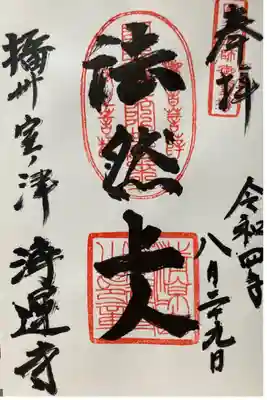 奉拝
令和四年
八月二十九日
法然上人
播州室ノ津
浄運寺